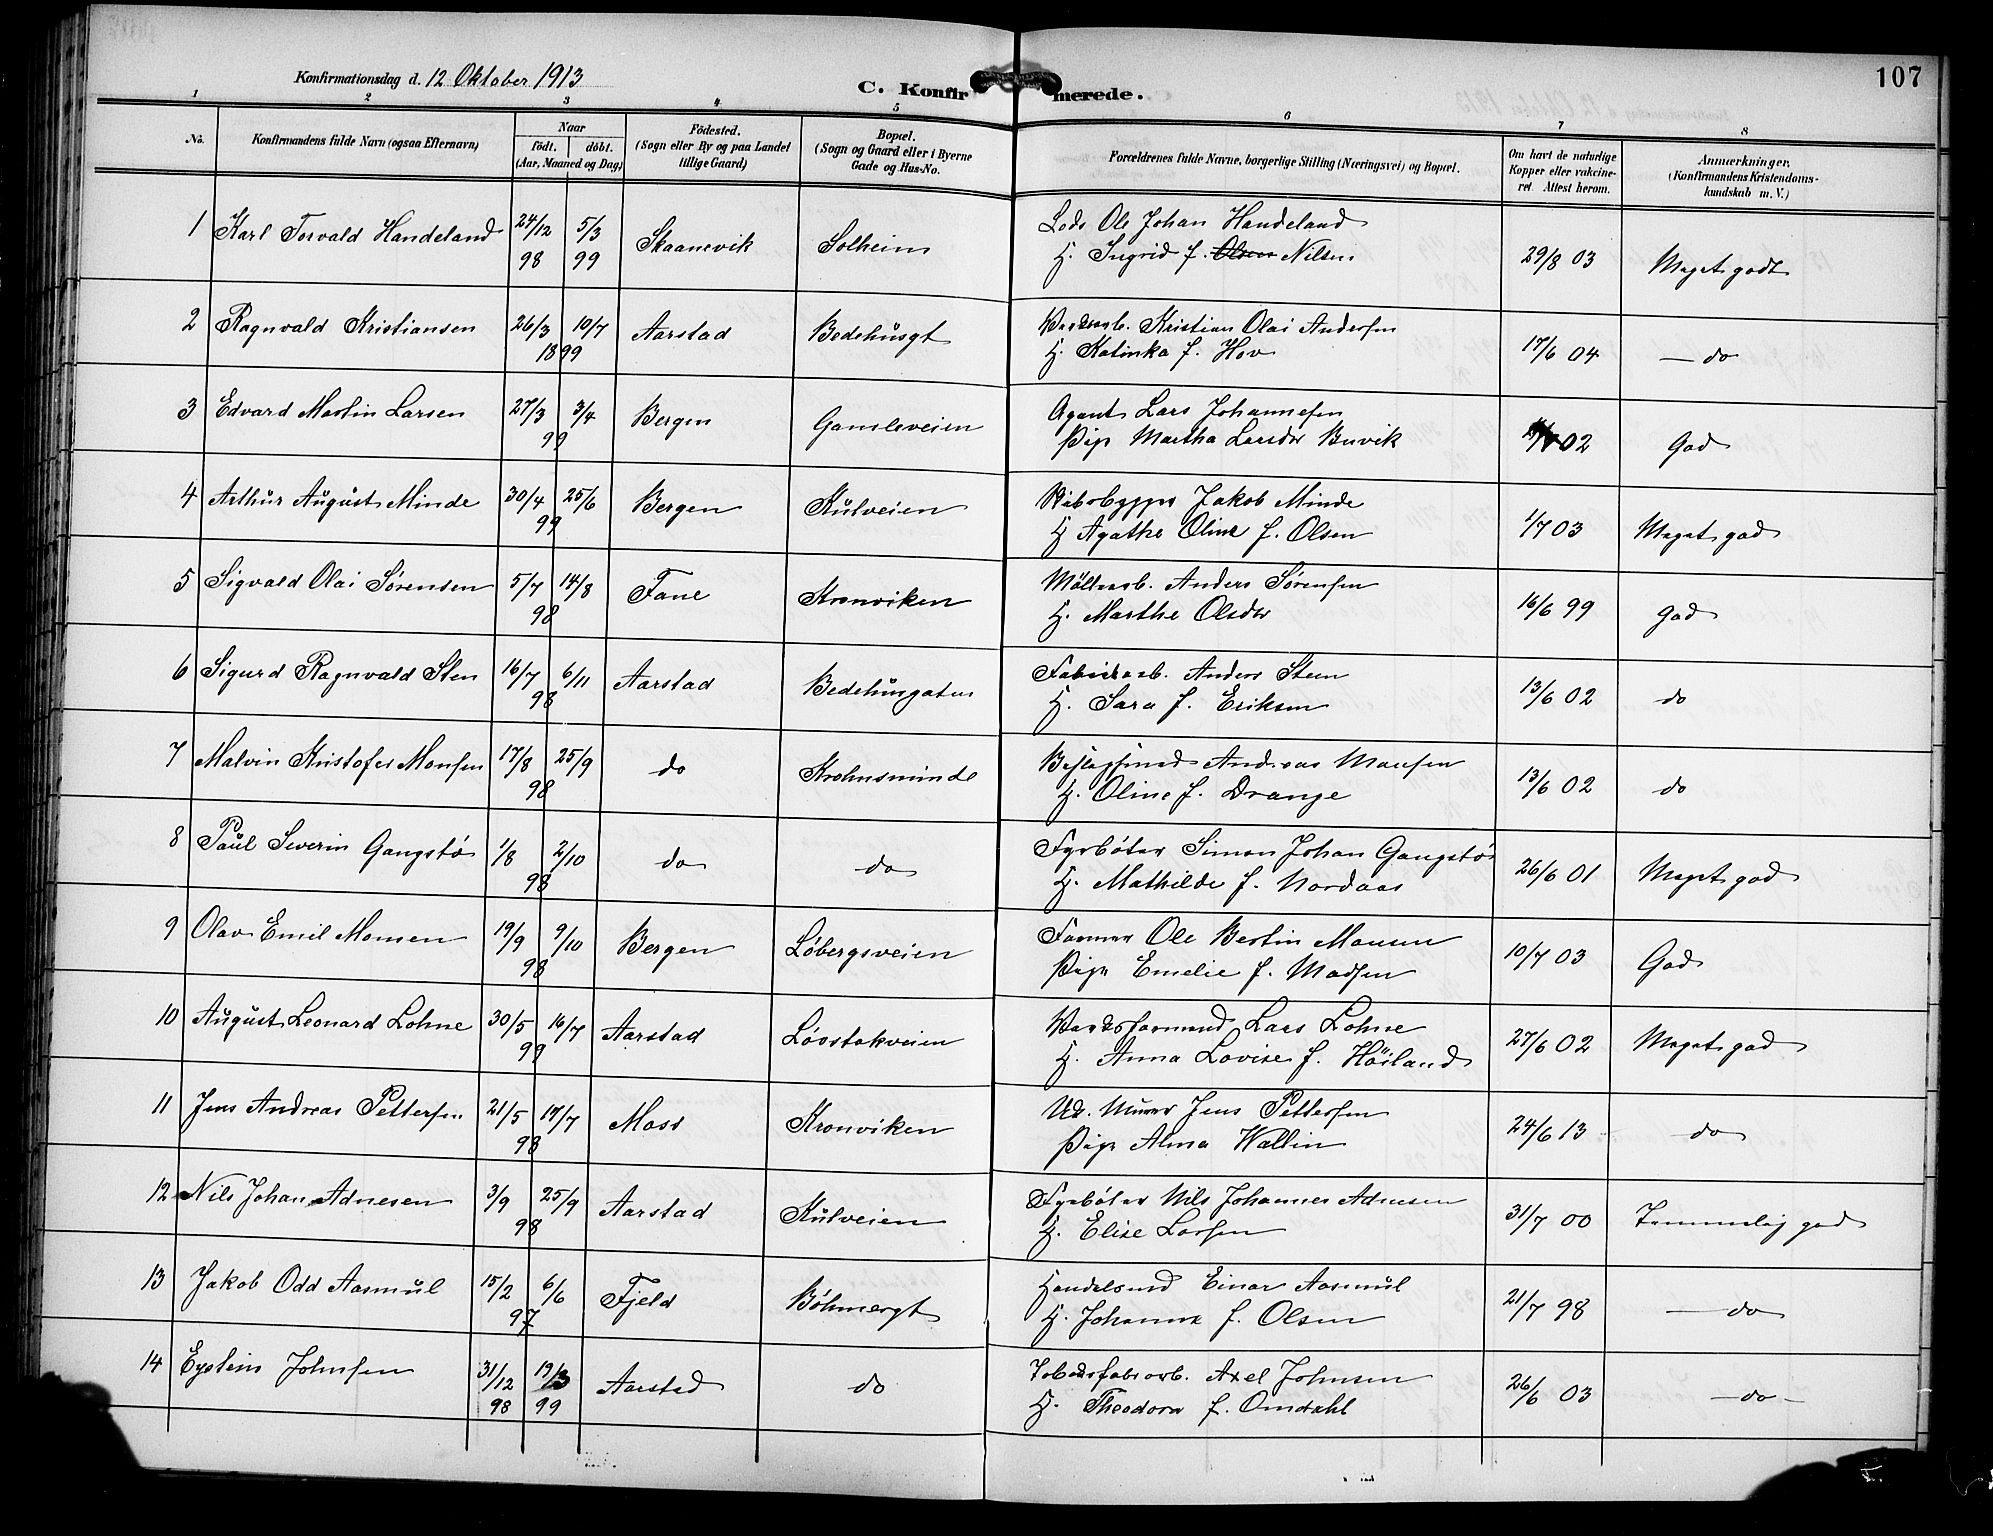 107
Konfirmationsdag d. 12 Oktober 1913
C. Konfirmerede.
1 2 3 4 5 6 7 8
No. Konfirmandens fulde Navn (ogsaa Efternavn) Naar født. døbt. (Aar, Maaned og Dag) Fødested. (Sogn eller By og paa Landet tillige Gaard) Bopæl. (Sogn og Gaard eller i Byerne Gade og Hus-No. Forældrenes fulde Navne, borgerlige Stilling (Næringsvei) og Bopæl. Om havt de naturlige Kopper eller vakcineret. Attest herom. Anmærkninger. (Konfirmandens Kristendomskundskab m. V.)
1 Karl Torvald Handeland 24/12 98 5/3 99 Skaanevik Solheim Lods Ole Johan Handeland 29/8 03 Meget godt
H. Ingrid f. Olsen Nilsen
2 Ragnvald Kristiansen 26/3 10/7 1899 Aarstad Bedehusgt Kristian Olai Andersen 17/6 04 — do
H. Katinka f. Hov
3 Edvard Martin Larsen 27/3 3/4 99 Bergen Gamleveien Agent Lars Johannesen 02 God
Pige Martha Larsdtr Buvik
4 Arthur August Minde 30/4 25/6 99 Bergen Kulveien Jakob Minde 1/7 03 Meget god
H Agathe Oline f. Olsen
5 Sigvald Olai Sørensen 5/7 14/8 98 Fane Kronviken Møllerarb. Anders Sørensen 16/6 99 God
H. Marthe Olsdtr
6 Sigurd Ragnvald Sten 16/7 6/11 98 Aarstad Bedehusgaten Fabrikarb. Anders Steen 13/6 02 do
H. Sara f. Eriksen
7 Malvin Kristofer Monsen 17/8 25/9 98 do Krohnsminde Andreas Monsen 13/6 02 do
H. Oline f. Drange
8 Paul Severin Gangstø 1/8 2/10 98 do do Fyrbøter Simon Johan Gangstø 26/6 01 Meget god
H. Mathilde f. Nordaas
9 Olav Emil Monsen 19/9 9/10 98 Bergen Løbergsveien Farmer Ole Bertin Monsen 10/7 03 God
Pige Emelie f. Madsen
10 August Leonard Lohne 30/5 16/7 99 Aarstad Løvstakveien Lars Lohne 27/6 02 Meget god
H. Anna Lovise f. Høiland
11 Jens Andreas Pettersen 21/5 17/7 98 Moss Kronviken Ug. Murer Jens Pettersen 24/6 13 do
Pige Alma Wallin
12 Nils Johan Adnesen 3/9 25/9 98 Aarstad Kulveien Fyrbøter Nils Johannes Adnesen 31/7 00 Temmelig god
H. Elise Larsen
13 Jakob Odd Aasmul 15/2 6/6 97 Fjeld Bøhmergt Handelsmd Einar Aasmul 21/7 98 — do
H. Johanne f. Olsen
14 Eystein Johnsen 31/12 98 19/3 99 Aarstad do Tobaksfabarb. Axel Johnsen 26/6 03 — do —
H. Theodora f. Omdahl